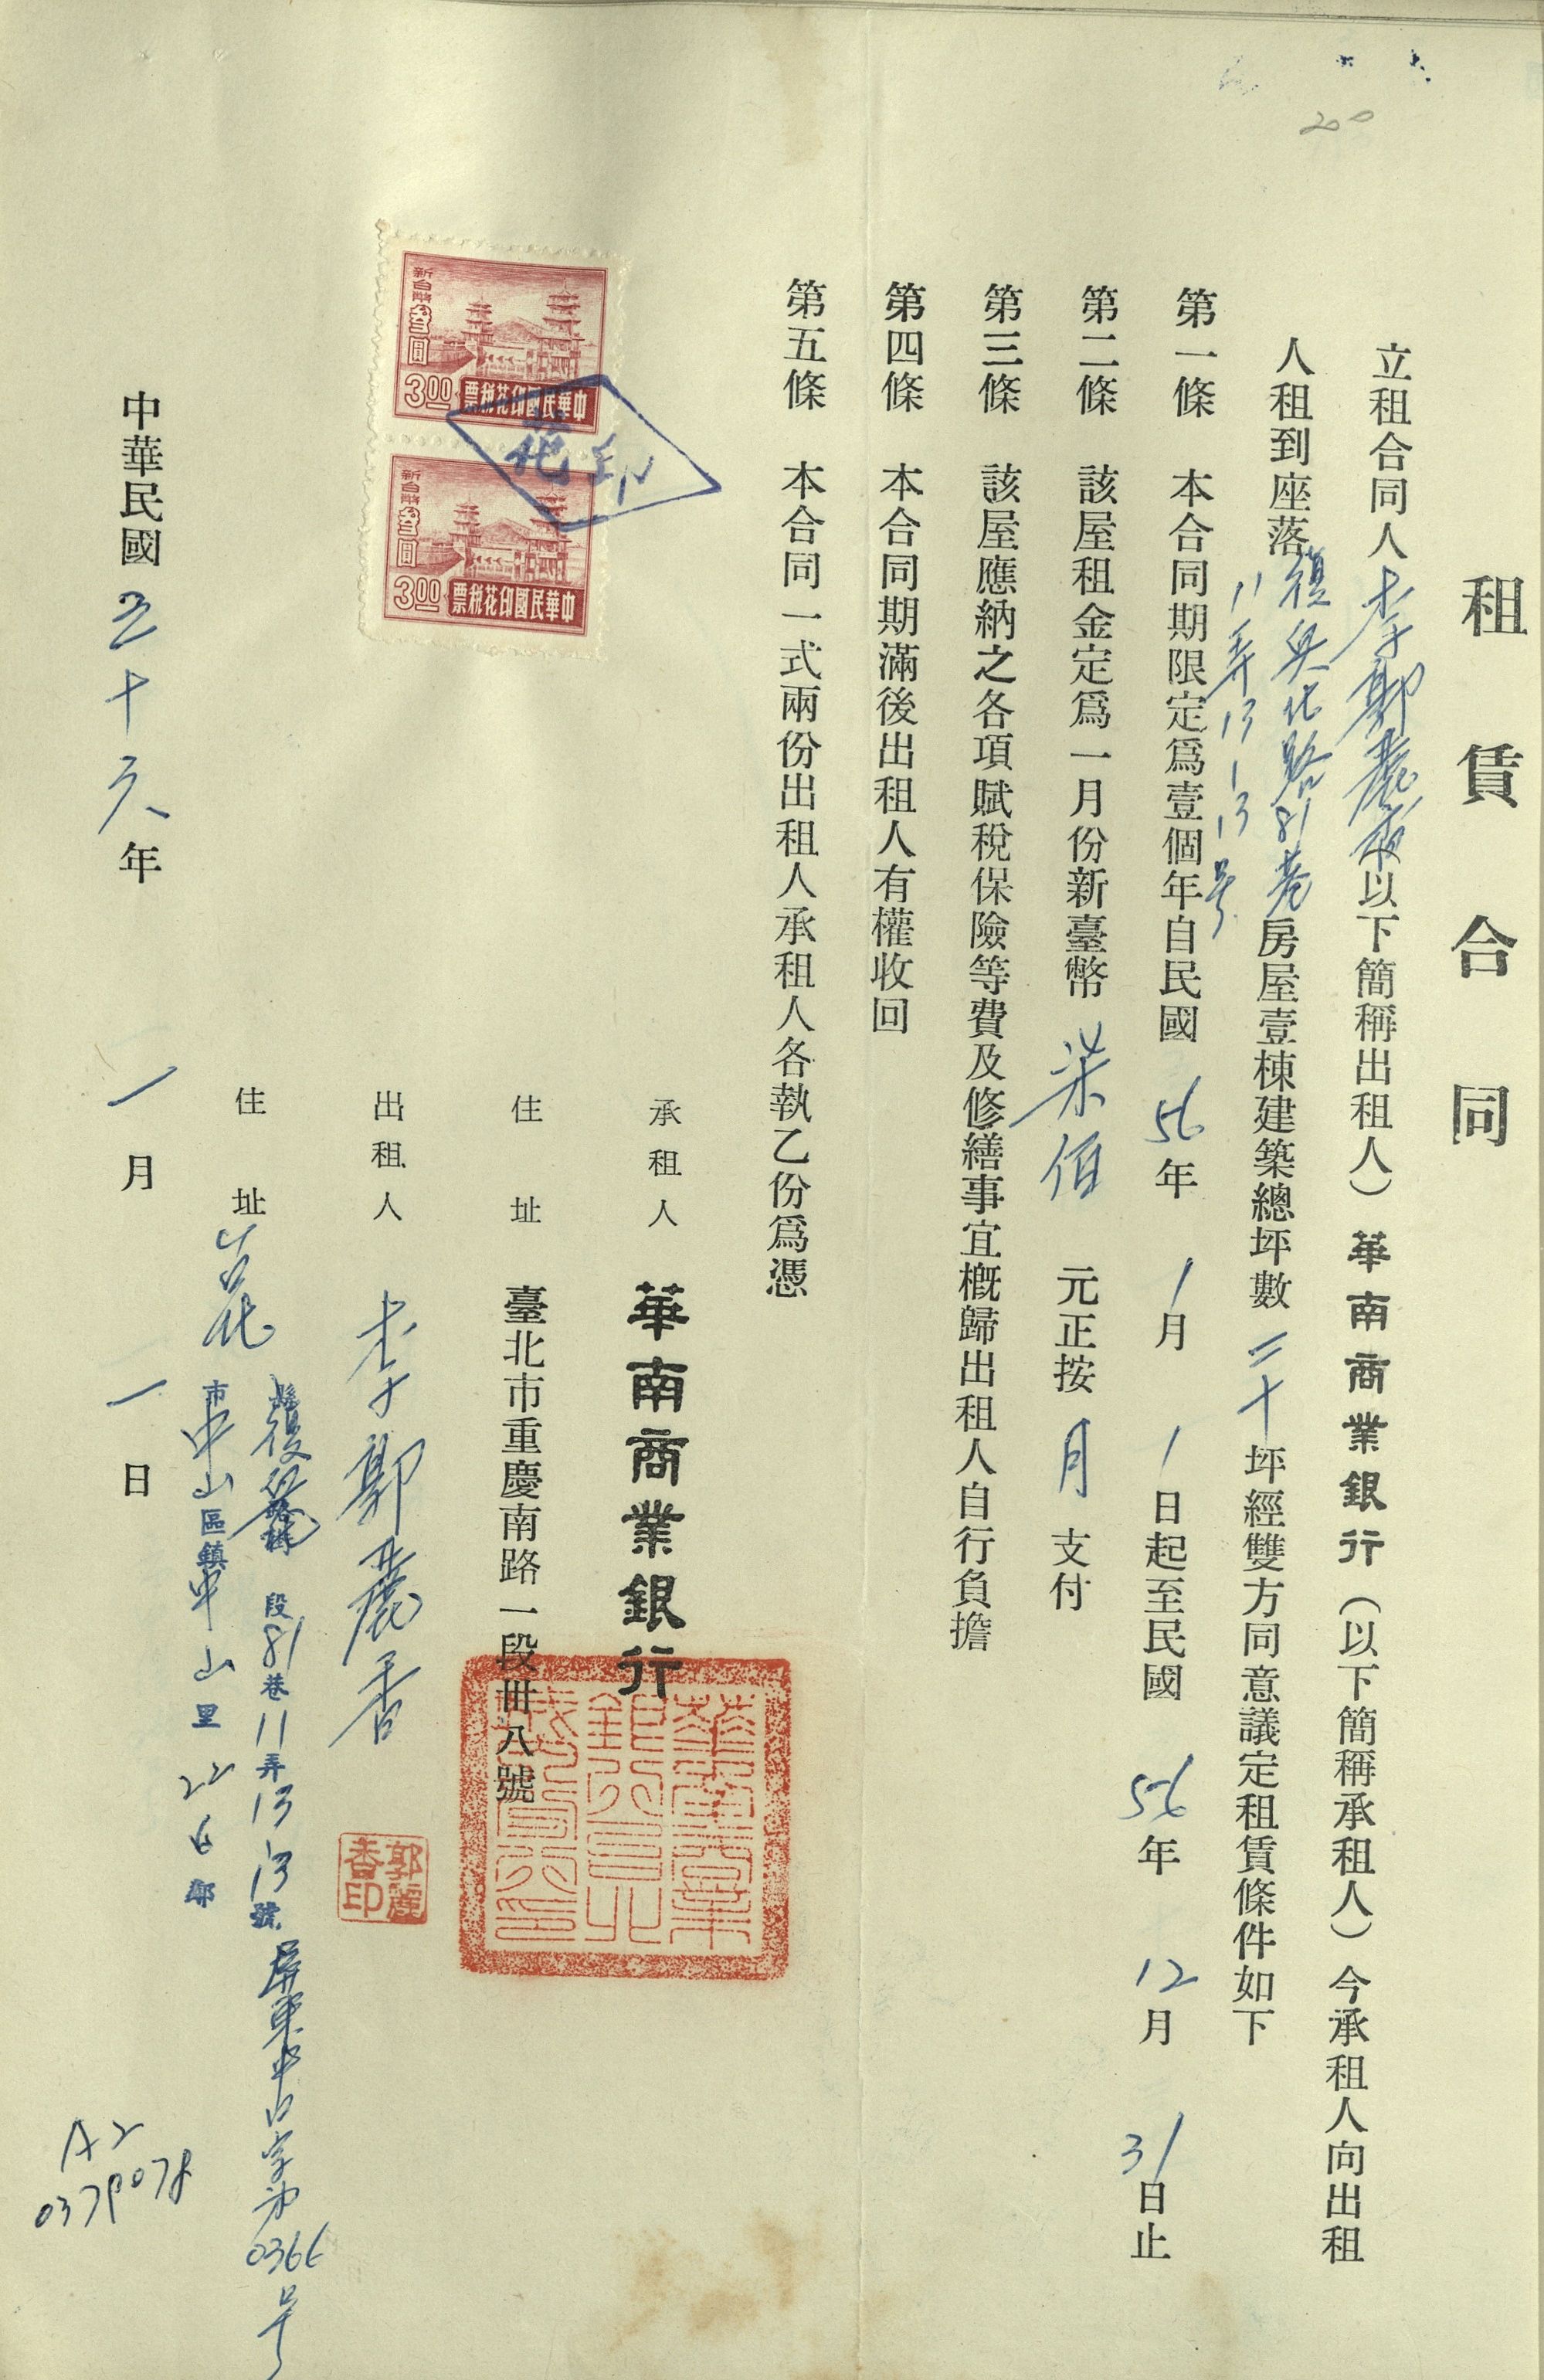 租賃合同
立租合同人李郭麗香(以下簡稱出租人)華南商業銀行(以下簡稱承租人)今承租人向出租
人租到座落復興北路81巷房屋壹棟建築總坪數二十坪經雙方同意議定租賃條件如下
11弄13-13号
第一條 本合同期限定爲壹個年自民國56年1月1日起至民國56年12月31日止
第二條 該屋租金定爲一月份新臺幣柒佰元正按月支付
第三條 該屋應納之各項賦稅保險等費及修繕事宜槪歸出租人自行負擔
第四條 本合同期滿後出租人有權收回
第五條 本合同一式兩份出租人承租人各執乙份爲憑
承租人 華南商業銀行
住址 臺北市重慶南路一段卅八號
出租人 李郭麗香
郭麗香印
住址
段81巷11弄13-13號屏東中口字第0366号
市中山區鎮中山里22 6鄰
中華民國五十六年一月一日
新台幣叁圓
3.00
中華民國印花稅票
新台幣叁圓
3.00
中華民國印花稅票
印花
200
A2
0379078